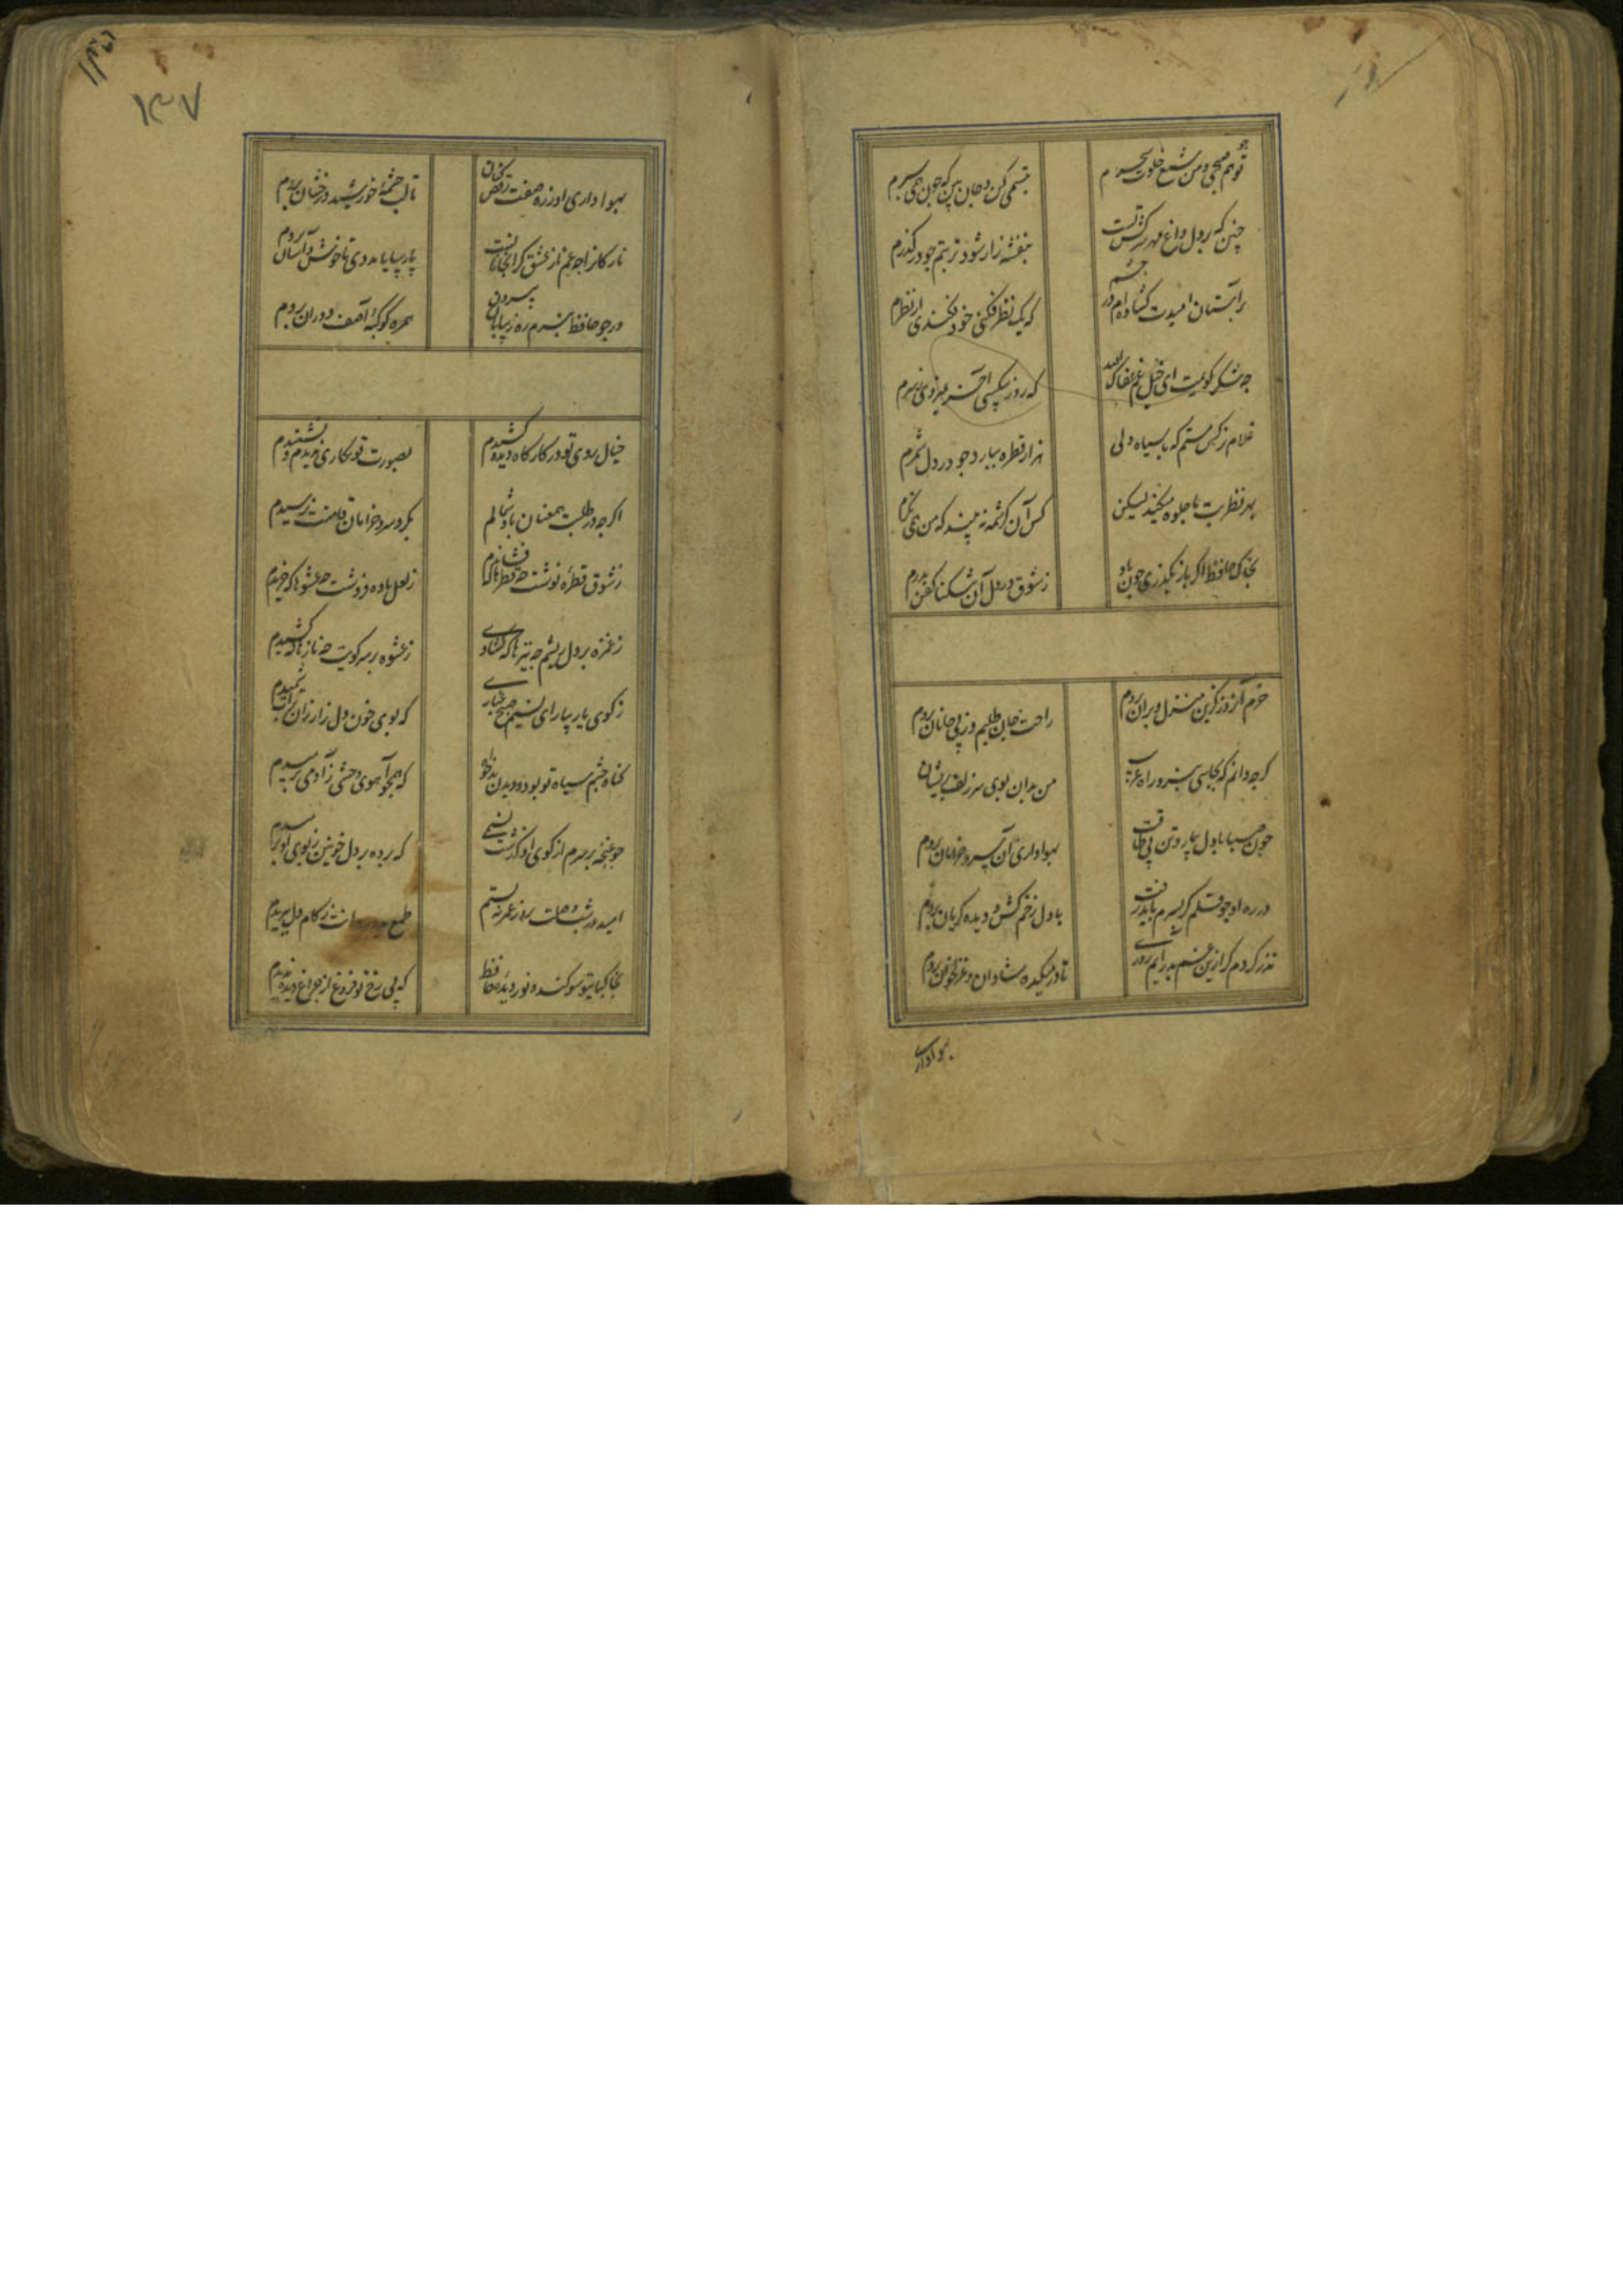 تو همچو صبحی و من شمع خلوت سحرم
تبسمی کن و جان بین که چون همی سپرم
چنین که بر دل من داغ زلف سرکش تست
بنفشه زار شود تربتم چو درگذرم
بر آستان امیدت گشاده‌ام در چشم
که یک نظر فکنی خود فکندی از نظرم
چه شکر گویمت ای خیل غم عفاک الله
که روز بیکسی آخر نمیروی ز سرم
غلام نرگس مستم که با سیاه دلی
هزار قطره ببارد چو درد دل شمرم
بهر نظر بت ما جلوه میکند لیکن
کس آن کرشمه نه بیند که من همی نگرم
بخاک حافظ اگر یار بگذرد چون باد
ز شوق در دل آن تنگنا کفن بدرم
خرم آن روز کزین منزل ویران بروم
راحت جان طلبم وز پی جانان بروم
گرچه دانم که بجایی نبرد راه غریب
من ببوی سر آن زلف پریشان بروم
چون صبا با دل بیمار و تن بی طاقت
بهواداری آن سرو خرامان بروم
در ره او چو قلم گر بسرم باید رفت
با دل زخم کش و دیده گریان بروم
نذر کردم گر ازین غم بدر آیم روزی
تا در میکده شادان و غزلخوان بروم
بهواداری
۱۳۷
بهواداری او ذره صفت رقص کنان
تا لب چشمه خورشید درخشان بروم
تازکانرا چو غم از عشق گرانباران نیست
پارسایان مددی تا خوش و آسان بروم
ور چو حافظ نبرم ره ز بیابان بیرون
همره کوکبه آصف دوران بروم
خیال روی تو در کارگاه دیده کشیدم
بصورت تو نگاری ندیدم و نشنیدم
اگرچه در طلبت همعنان باد شمالم
بگرد سرو خرامان قامتت نرسیدم
ز شوق چشمه نوشت چه قطره‌ها که فشاندم
ز لعل باده فروشت چه عشوها که خریدم
ز غمزه بر دل ریشم چه تیرها که گشادی
ز غصه بر سر کویت چه بارها که کشیدم
ز کوی یار بیار ای نسیم صبح غباری
که بوی خون دل زار از آن تراب شمیدم
گناه چشم سیاه تو بود و گردن دلخواه
که همچو آهوی وحشی ز آدمی برمیدم
چو غنچه بر سرم از کوی او گذشت نسیمی
که پرده بر دل خونین ز بوی او بدریدم
امید در شب زلفت بروز عمر نبستم
طمع بدور دهانت ز کام دل ببریدم
بخاکپای تو سوگند و نور دیده حافظ
که بی رخ تو فروغ از چراغ دیده ندیدم